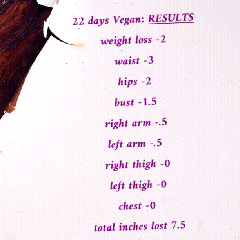 22 days Vegan: RESULTS
weight loss -2
waist -3
hips -2
bust -1.5
right arm -.5
left arm -.5
right thigh -0
left thigh -0
chest -0
total inches lost 7.5